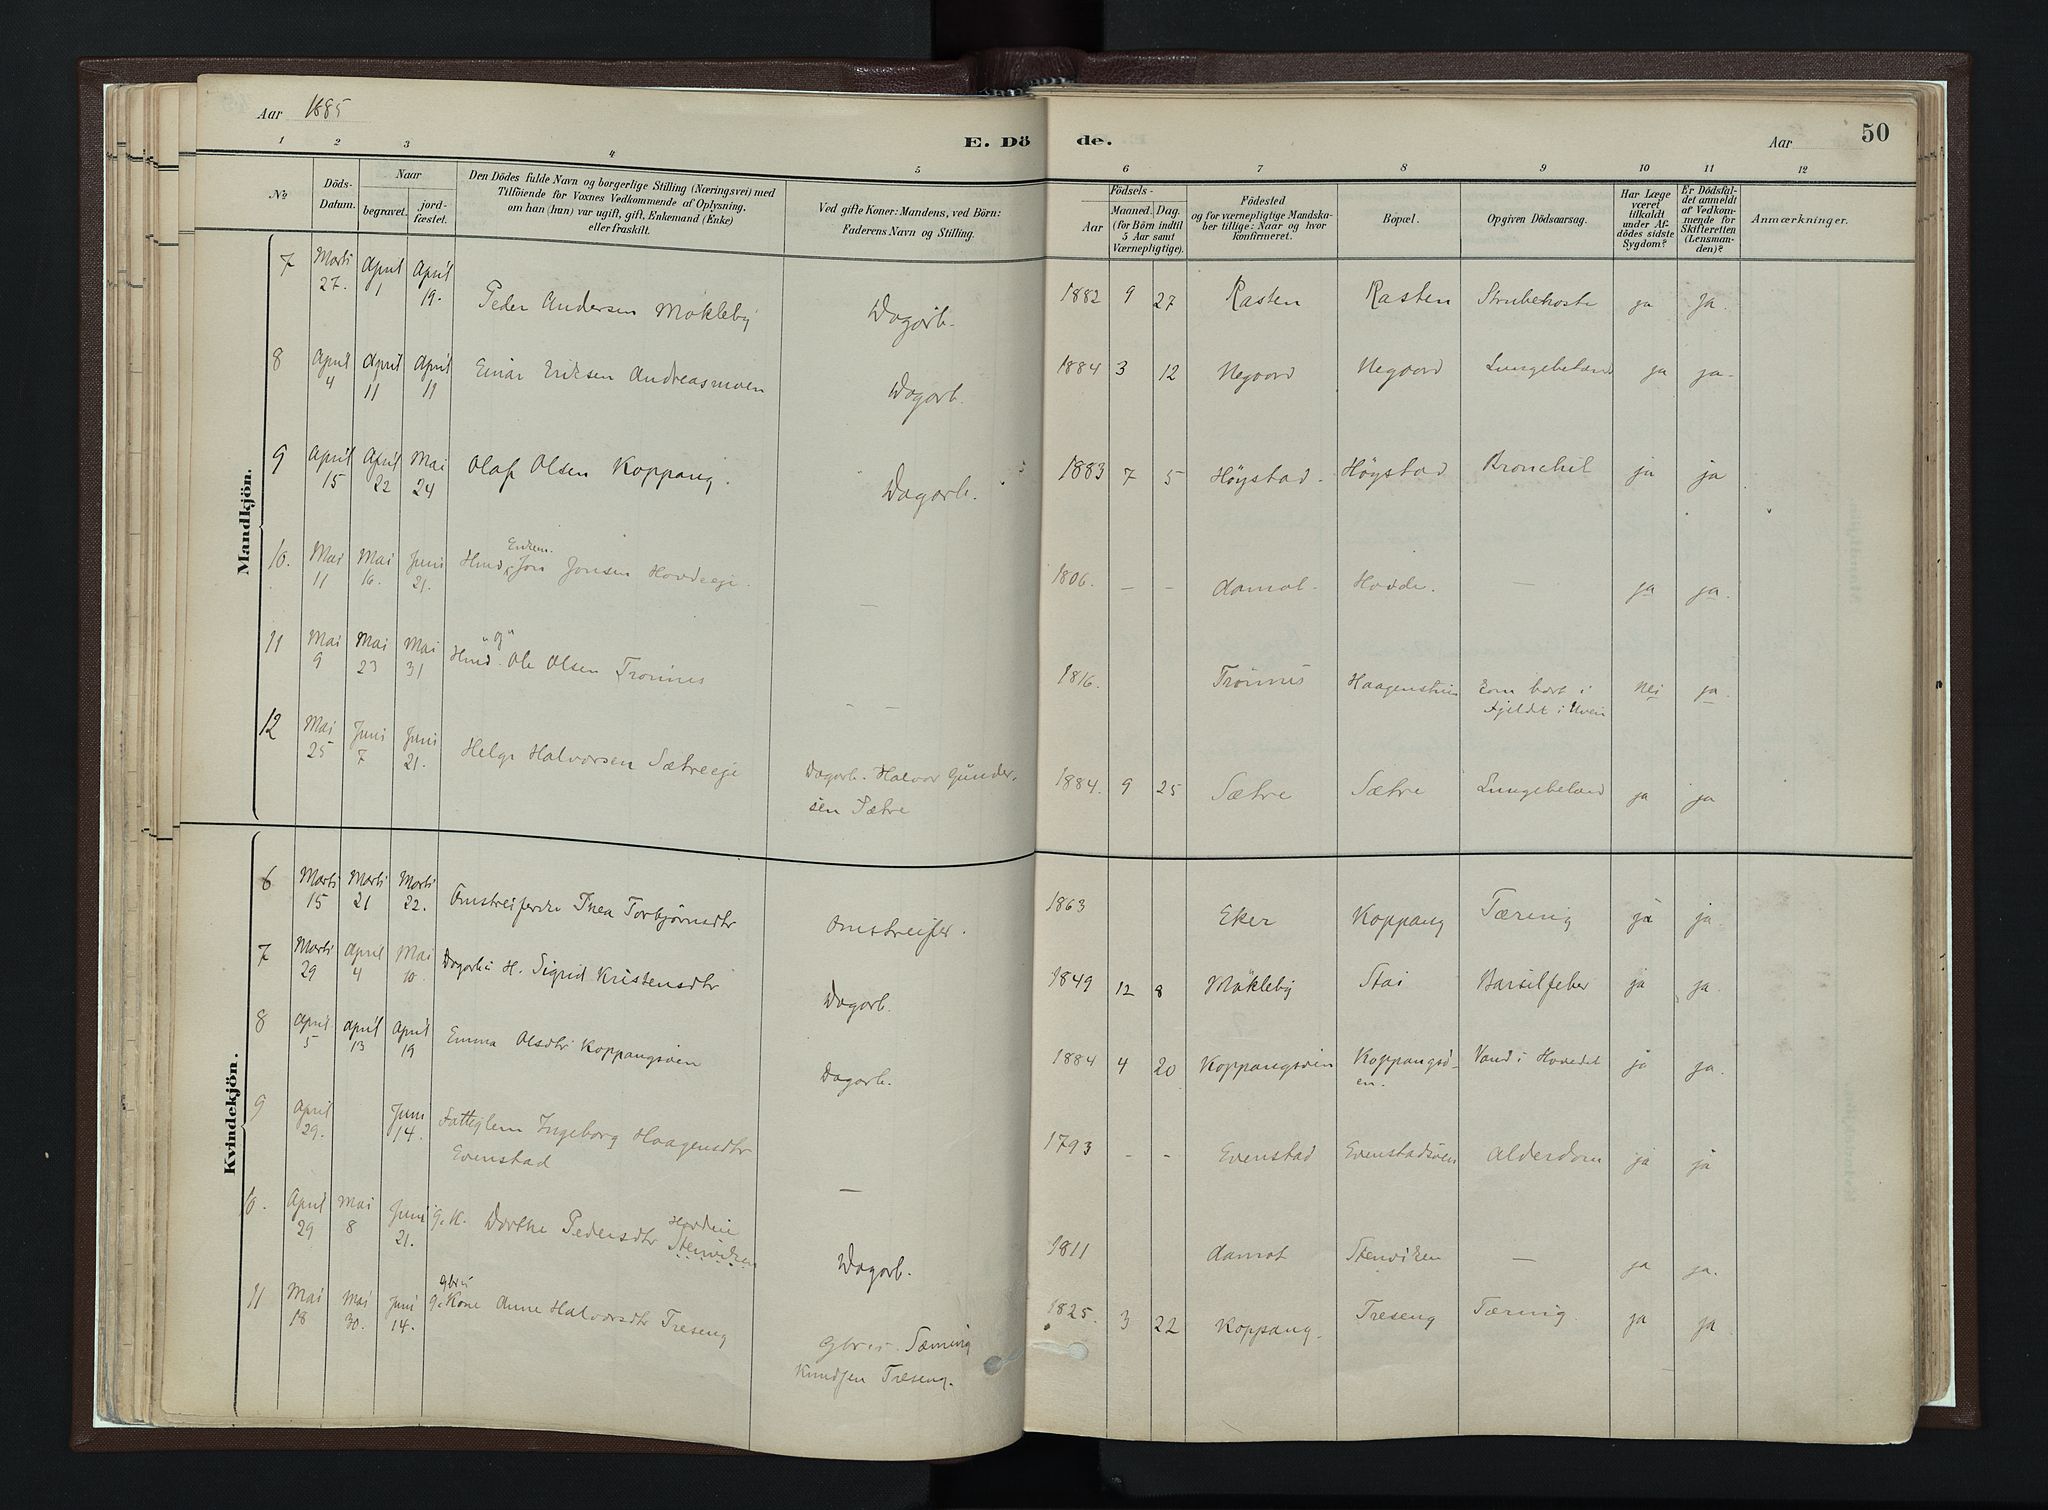 Aar 1885
E. Dö de.
Aar
50
1 2 3 4 5 6 7 8 9 10 11 12
No
Döds-Datum.
Naar
begravet.
jord-fæstet.
Den Dödes fulde Navn og borgerlige Stilling (Næringsvei) med
Tilföiende for Voxnes Vedkommende af Oplysning,
om han (hun) var ugift, gift, Enkemand (Enke)
eller fraskilt.
Ved gifte Koner: Mandens, ved Börn:
Faderens Navn og Stilling.
Födsels-
Aar
Maaned. Dag.
(for Börn indtil
5 Aar samt
Værnepligtige).
Födested
og for værnepligtige Mandska-
ber tillige: Naar og hvor
konfirmeret.
Bopæl.
Opgiven Dödsaarsag.
Har Læge
været
tilkaldt
under Af-
dödes sidste
Sygdom?
Er Dödsfal-
det anmeldt
af Vedkom-
mende for
Skifteretten
(Lensman-
den)?
Anmærkninger.
Mandkjön.
7 Marts 27. April 1 April 19. Peder Andersen Møkleby Dagarb. 1882 9 27 Rasten Rasten Strubehoste ja ja.
8 April 4 April 11 April 11 Einar Eriksen Andreasmoen Dagarb. 1884 3 12 Negaard Negaard Lungebetænd ja ja.
9 April 15 April 22 Mai 24 Olaf Olsen Koppang. Dagarb. 1883 7 5 Høystad. Høystad Bronchit ja ja
10. Mai 11 Mai 16. Juni 21. Enkem.
Hmd. Jon Jonsen Hovdeeje. — 1806. — — Aamot. Hovde. — ja ja.
11 Mai 9 Mai 23 Mai 31 "g"
Hmd. Ole Olsen Trønnes — — 1816. Trønnes Haagenstuen Kom bort i
Fjeldet i Uveir nei ja.
12 Mai 25 Juni 7 Juni 21. Helge Halvorsen Sætreeje Dagarb. Halvor Gunder-
sen Sætre 1884. 9 25 Sætre Sætre Lungebetænd ja ja
Kvindekjön.
6 Marts 15 Marts 21 Marts 22. Omstreiferske Thea Torbjørnsdtr Omstreifer. 1863 Eker Koppang Tæring ja ja.
7 Marts 29 April 4 Mai 10. Dagarb. H. Sigrid Kristensdtr Dagarb. 1849 12 8 Møkleby Stai Barselfeber ja ja.
8 April 5 April 13 April 19 Emma Olsdtr Koppangsøen Dagarb. 1884 4 20 Koppangsøen Koppangsø-
en. Vand i Hovedet ja ja.
9 April 29. Juni 14. Fattiglem Ingeborg Haagensdtr
Evenstad — 1793 — — Evenstad Evenstadsøen Alderdom ja ja
10. April 29 Mai 8 Juni 21. g.K. Dorthe Pedersdtr Hovdeie
Stenviken Dagarb. 1811 Aamot Stenviken — ja ja.
11 Mai 18 Mai 30. Juni 14. Gbr.
g. Kone Anne Halvorsdtr Treseng Gbr. Sæming
Knudsen Treseng. 1825. 3 22 Koppang. Treseng Tæring. ja ja